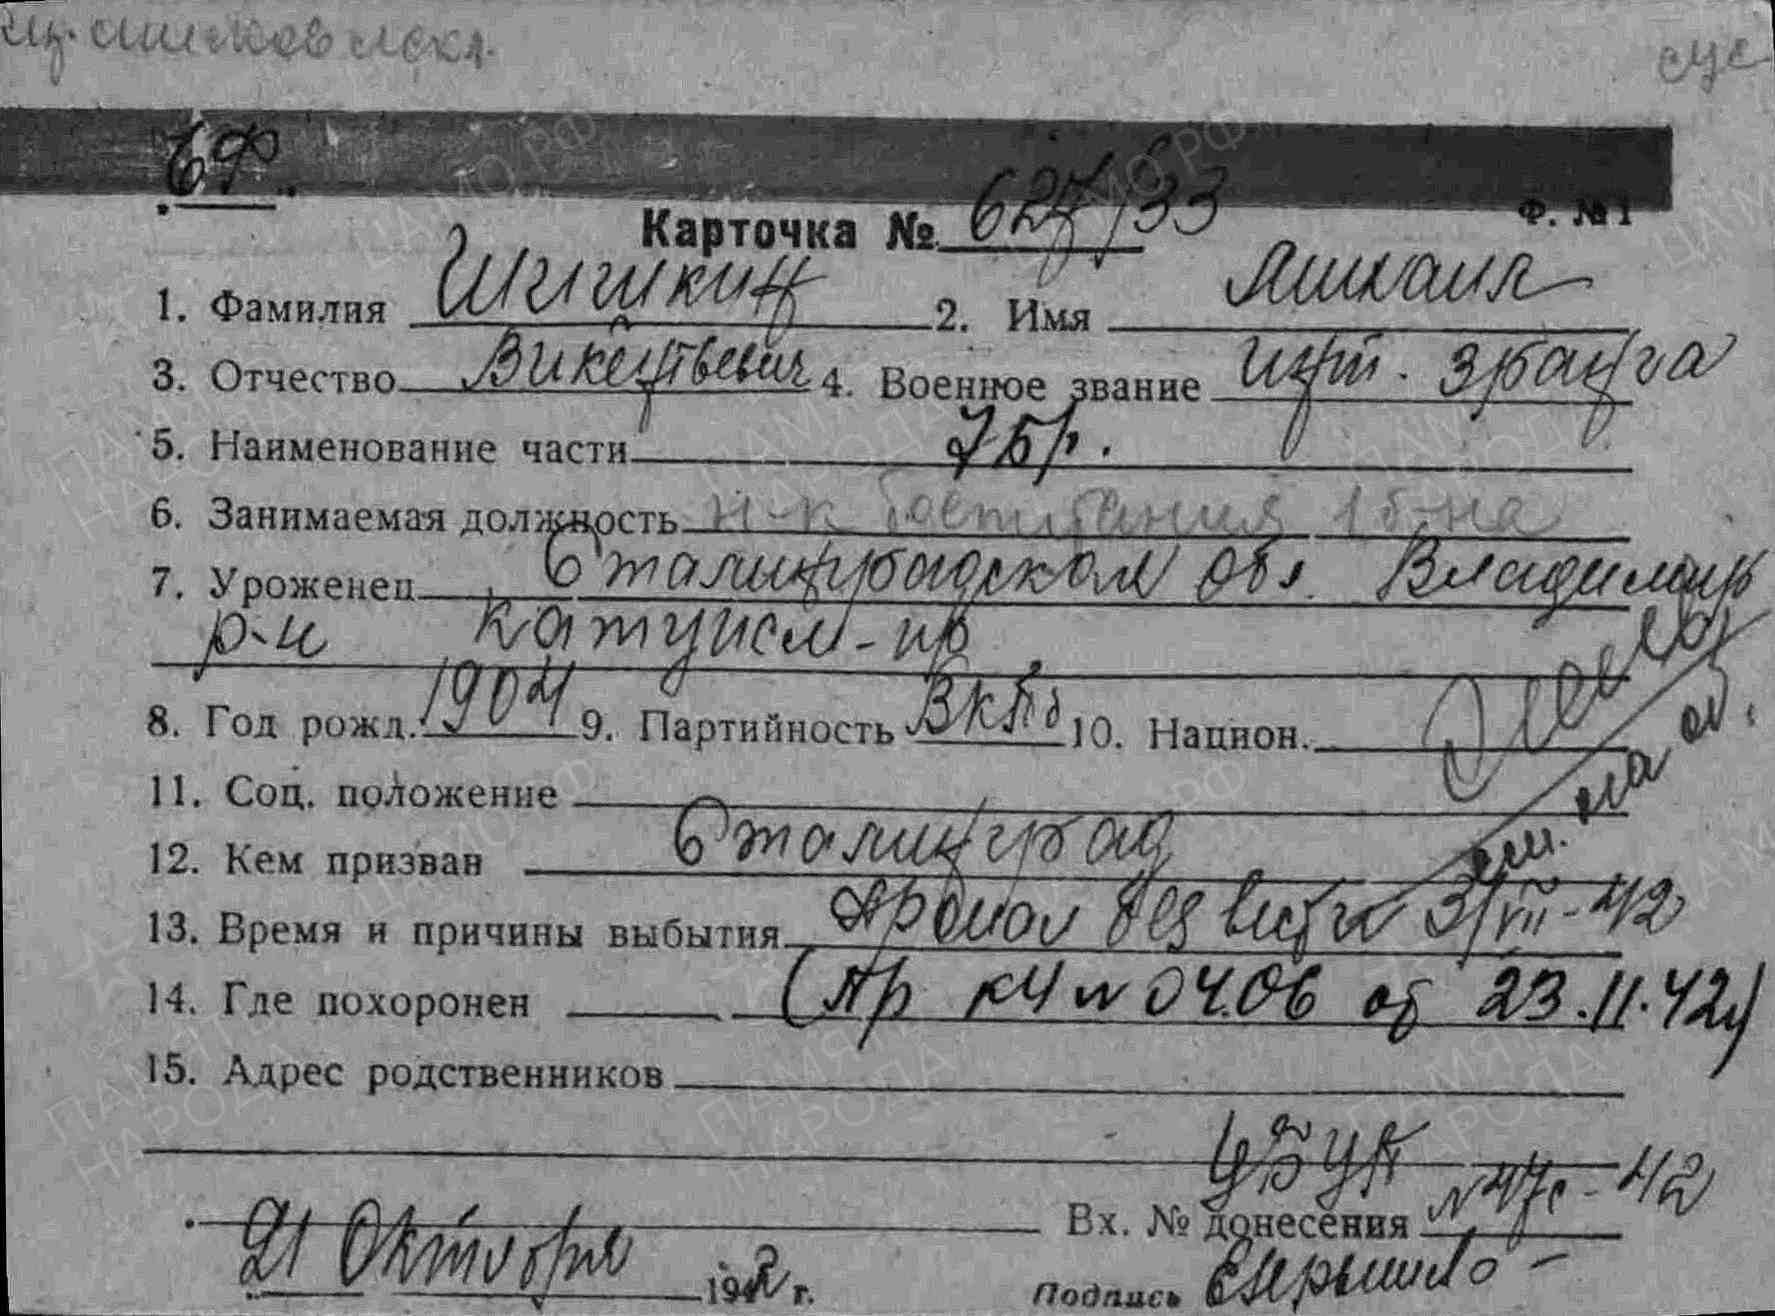 ЕФ.
Карточка № 627/33 Ф. № 1
1. Фамилия Шишкин 2. Имя Михаил
3. Отчество Викентьевич 4. Военное звание инт. 3 ранга
5. Наименование части 7 бр.
6. Занимаемая должность н-к питания 1 б-на
7. Уроженец Сталинградской обл. Владимир
р-н
8. Год рожд. 1904 9. Партийность ВКПб 10. Национ.
11. Соц. положение
12. Кем призван Сталинград
13. Время и причины выбытия Пропал без вести 31/VII-42
14. Где похоронен (Пр КЧ № 0406 от 23.11.42г)
15. Адрес родственников
Вх. № донесения № 47с-42
21 Октября 1942 г. Подпись